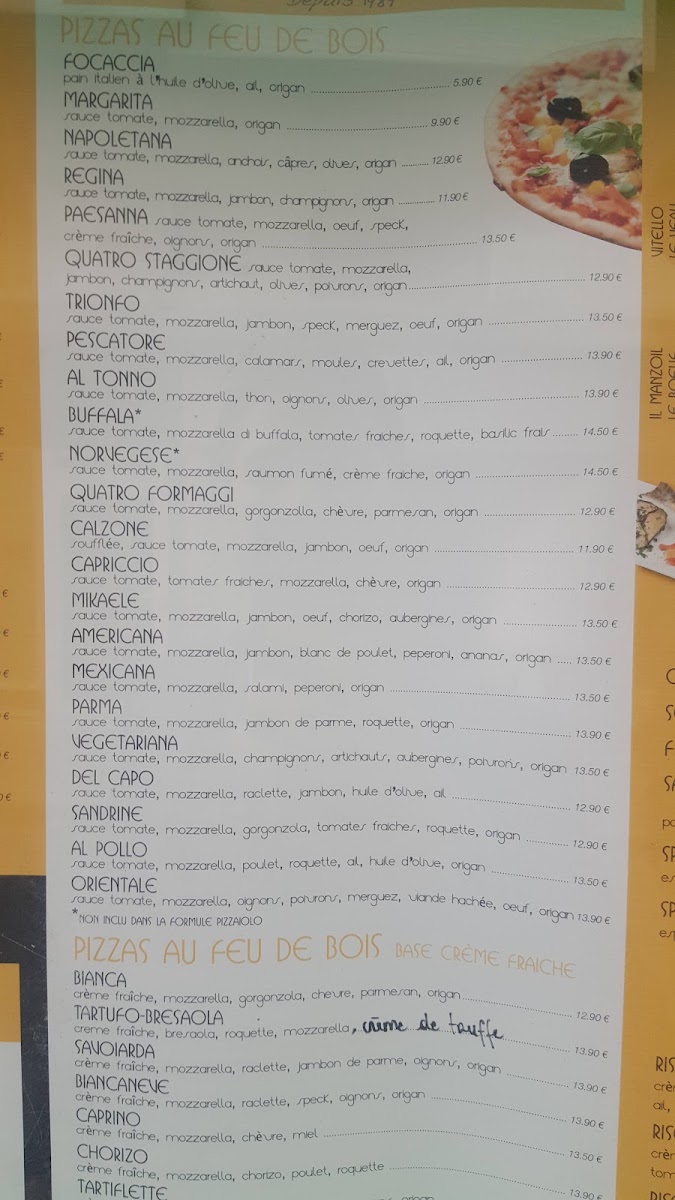 Depuis 1989
PIZZAS AU FEU DE BOIS
FOCACCIA
pain italien à l'huile d'olive, ail, origan 5.90 €
MARGARITA
sauce tomate, mozzarella, origan 9.90 €
NAPOLETANA
sauce tomate, mozzarella, anchois, câpres, olives, origan 12.90 €
REGINA
sauce tomate, mozzarella, jambon, champignons, origan 11.90 €
PAESANNA sauce tomate, mozzarella, oeuf, speck,
crème fraîche, oignons, origan 13.50 €
QUATRO STAGGIONE sauce tomate, mozzarella,
jambon, champignons, artichaut, olives, poivrons, origan 12.90 €
TRIONFO
sauce tomate, mozzarella, jambon, speck, merguez, oeuf, origan 13.50 €
PESCATORE
sauce tomate, mozzarella, calamars, moules, crevettes, ail, origan 13.90 €
AL TONNO
sauce tomate, mozzarella, thon, oignons, olives, origan 13.90 €
BUFFALA*
sauce tomate, mozzarella di buffala, tomates fraiches, roquette, basilic frais 14.50 €
NORVEGESE*
sauce tomate, mozzarella, saumon fumé, crème fraiche, origan 14.50 €
QUATRO FORMAGGI
sauce tomate, mozzarella, gorgonzolla, chèvre, parmesan, origan 12.90 €
CALZONE
soufflée, sauce tomate, mozzarella, jambon, oeuf, origan 11.90 €
CAPRICCIO
sauce tomate, tomates fraiches, mozzarella, chèvre, origan 12.90 €
MIKAELE
sauce tomate, mozzarella, jambon, oeuf, chorizo, aubergines, origan 13.50 €
AMERICANA
sauce tomate, mozzarella, jambon, blanc de poulet, peperoni, ananas, origan 13.50 €
MEXICANA
sauce tomate, mozzarella, salami, peperoni, origan 13.50 €
PARMA
sauce tomate, mozzarella, jambon de parme, roquette, origan 13.90 €
VEGETARIANA
sauce tomate, mozzarella, champignons, artichauts, aubergines, poivrons, origan 13.50 €
DEL CAPO
sauce tomate, mozzarella, raclette, jambon, huile d'olive, ail 12.90 €
SANDRINE
sauce tomate, mozzarella, gorgonzola, tomates fraiches, roquette, origan 12.90 €
AL POLLO
sauce tomate, mozzarella, poulet, roquette, ail, huile d'olive, origan 13.50 €
ORIENTALE
sauce tomate, mozzarella, oignons, poivrons, merguez, viande hachée, oeuf, origan 13.90 €
*NON INCLU DANS LA FORMULE PIZZAIOLO
PIZZAS AU FEU DE BOIS BASE CRÈME FRAICHE
BIANCA
crème fraîche, mozzarella, gorgonzola, chevre, parmesan, origan 12.90 €
TARTUFO-BRESAOLA
creme fraîche, bresaola, roquette, mozzarella, crème de truffe 13.90 €
SAVOIARDA
crème fraîche, mozzarella, raclette, jambon de parme, oignons, origan 13.90 €
BIANCANEVE
crème fraîche, mozzarella, raclette, speck, oignons, origan 13.90 €
CAPRINO
crème fraîche, mozzarella, chèvre, miel 13.50 €
CHORIZO
crème fraîche, mozzarella, chorizo, poulet, roquette 13.90 €
TARTIFLETTE
origan
VITELLO
IL MANZOIL
RIS
crè
ail,
RIS
crèr
tom